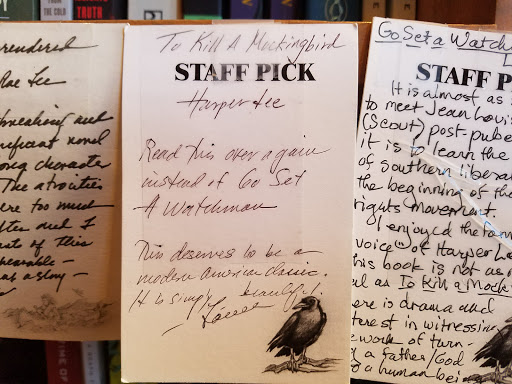 FROM THE COLD
TRUTH
rendered
Rae Lee
and
novel
character
The atrocities
were too much
and I
of this
bearable -
as a story -
To Kill A Mockingbird
STAFF PICK
Harper Lee
Read this over again
instead of Go Set
A Watchman
This deserves to be a
modern American classic.
It is simply beautiful.
Go Set a Watch
STAFF P
It is almost as
to meet Jean Loui
(Scout) post pube
it is to learn the
of southern libera
the beginning of th
rights movement.
I enjoyed the
voice" of Harper Le
his book is not as
as To Kill a Mock
ere is drama and
terest in witnessing
work of turn-
a father/God
a human bei